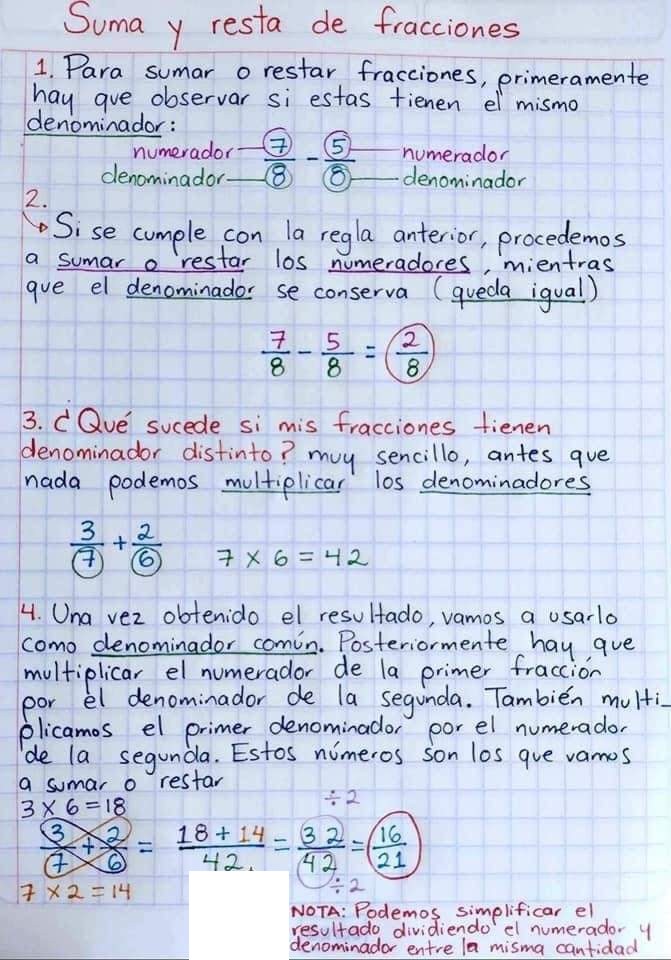 Suma y resta de fracciones
1. Para sumar o restar fracciones, primeramente
hay que observar si estas tienen el mismo
denominador:
numerador 7/8 - 5/8 numerador
denominador denominador
2.
Si se cumple con la regla anterior, procedemos
a sumar o restar los numeradores, mientras
que el denominador se conserva (queda igual)
7/8 - 5/8 = 2/8
3. ¿Qué sucede si mis fracciones tienen
denominador distinto? muy sencillo, antes que
nada podemos multiplicar los denominadores
3/7 + 2/6 7 x 6 = 42
4. Una vez obtenido el resultado, vamos a usarlo
como denominador común. Posteriormente hay que
multiplicar el numerador de la primer fracción
por el denominador de la segunda. También multi_
plicamos el primer denominador por el numerador
de la segunda. Estos números son los que vamos
a sumar o restar
3 x 6 = 18 ÷2
3/7 + 2/6 = 18 + 14/42 = 32/42 = 16/21
7 x 2 = 14 ÷2
NOTA: Podemos simplificar el
resultado dividiendo el numerador y
denominador entre la misma cantidad